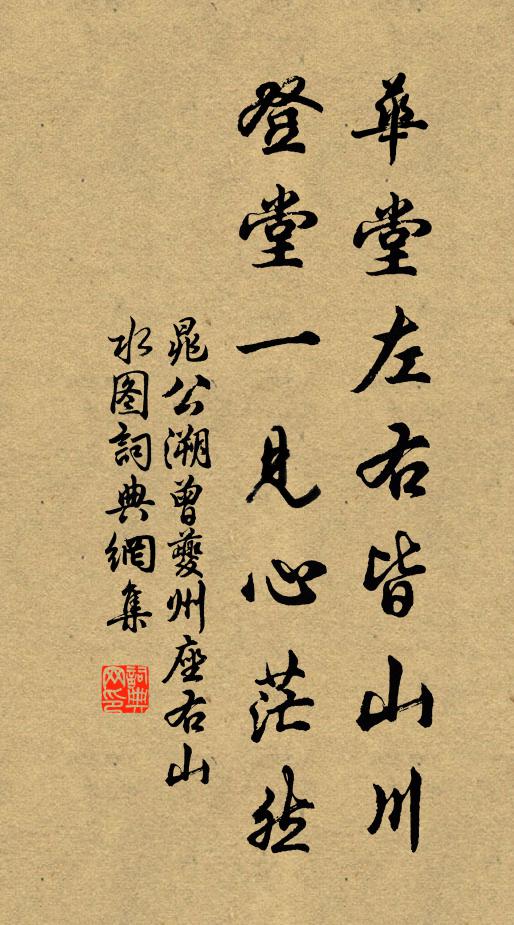 華堂左右皆山川
登堂一見心茫然
晁公溯曾夔州座右山
水图詞典網集
詞典網印